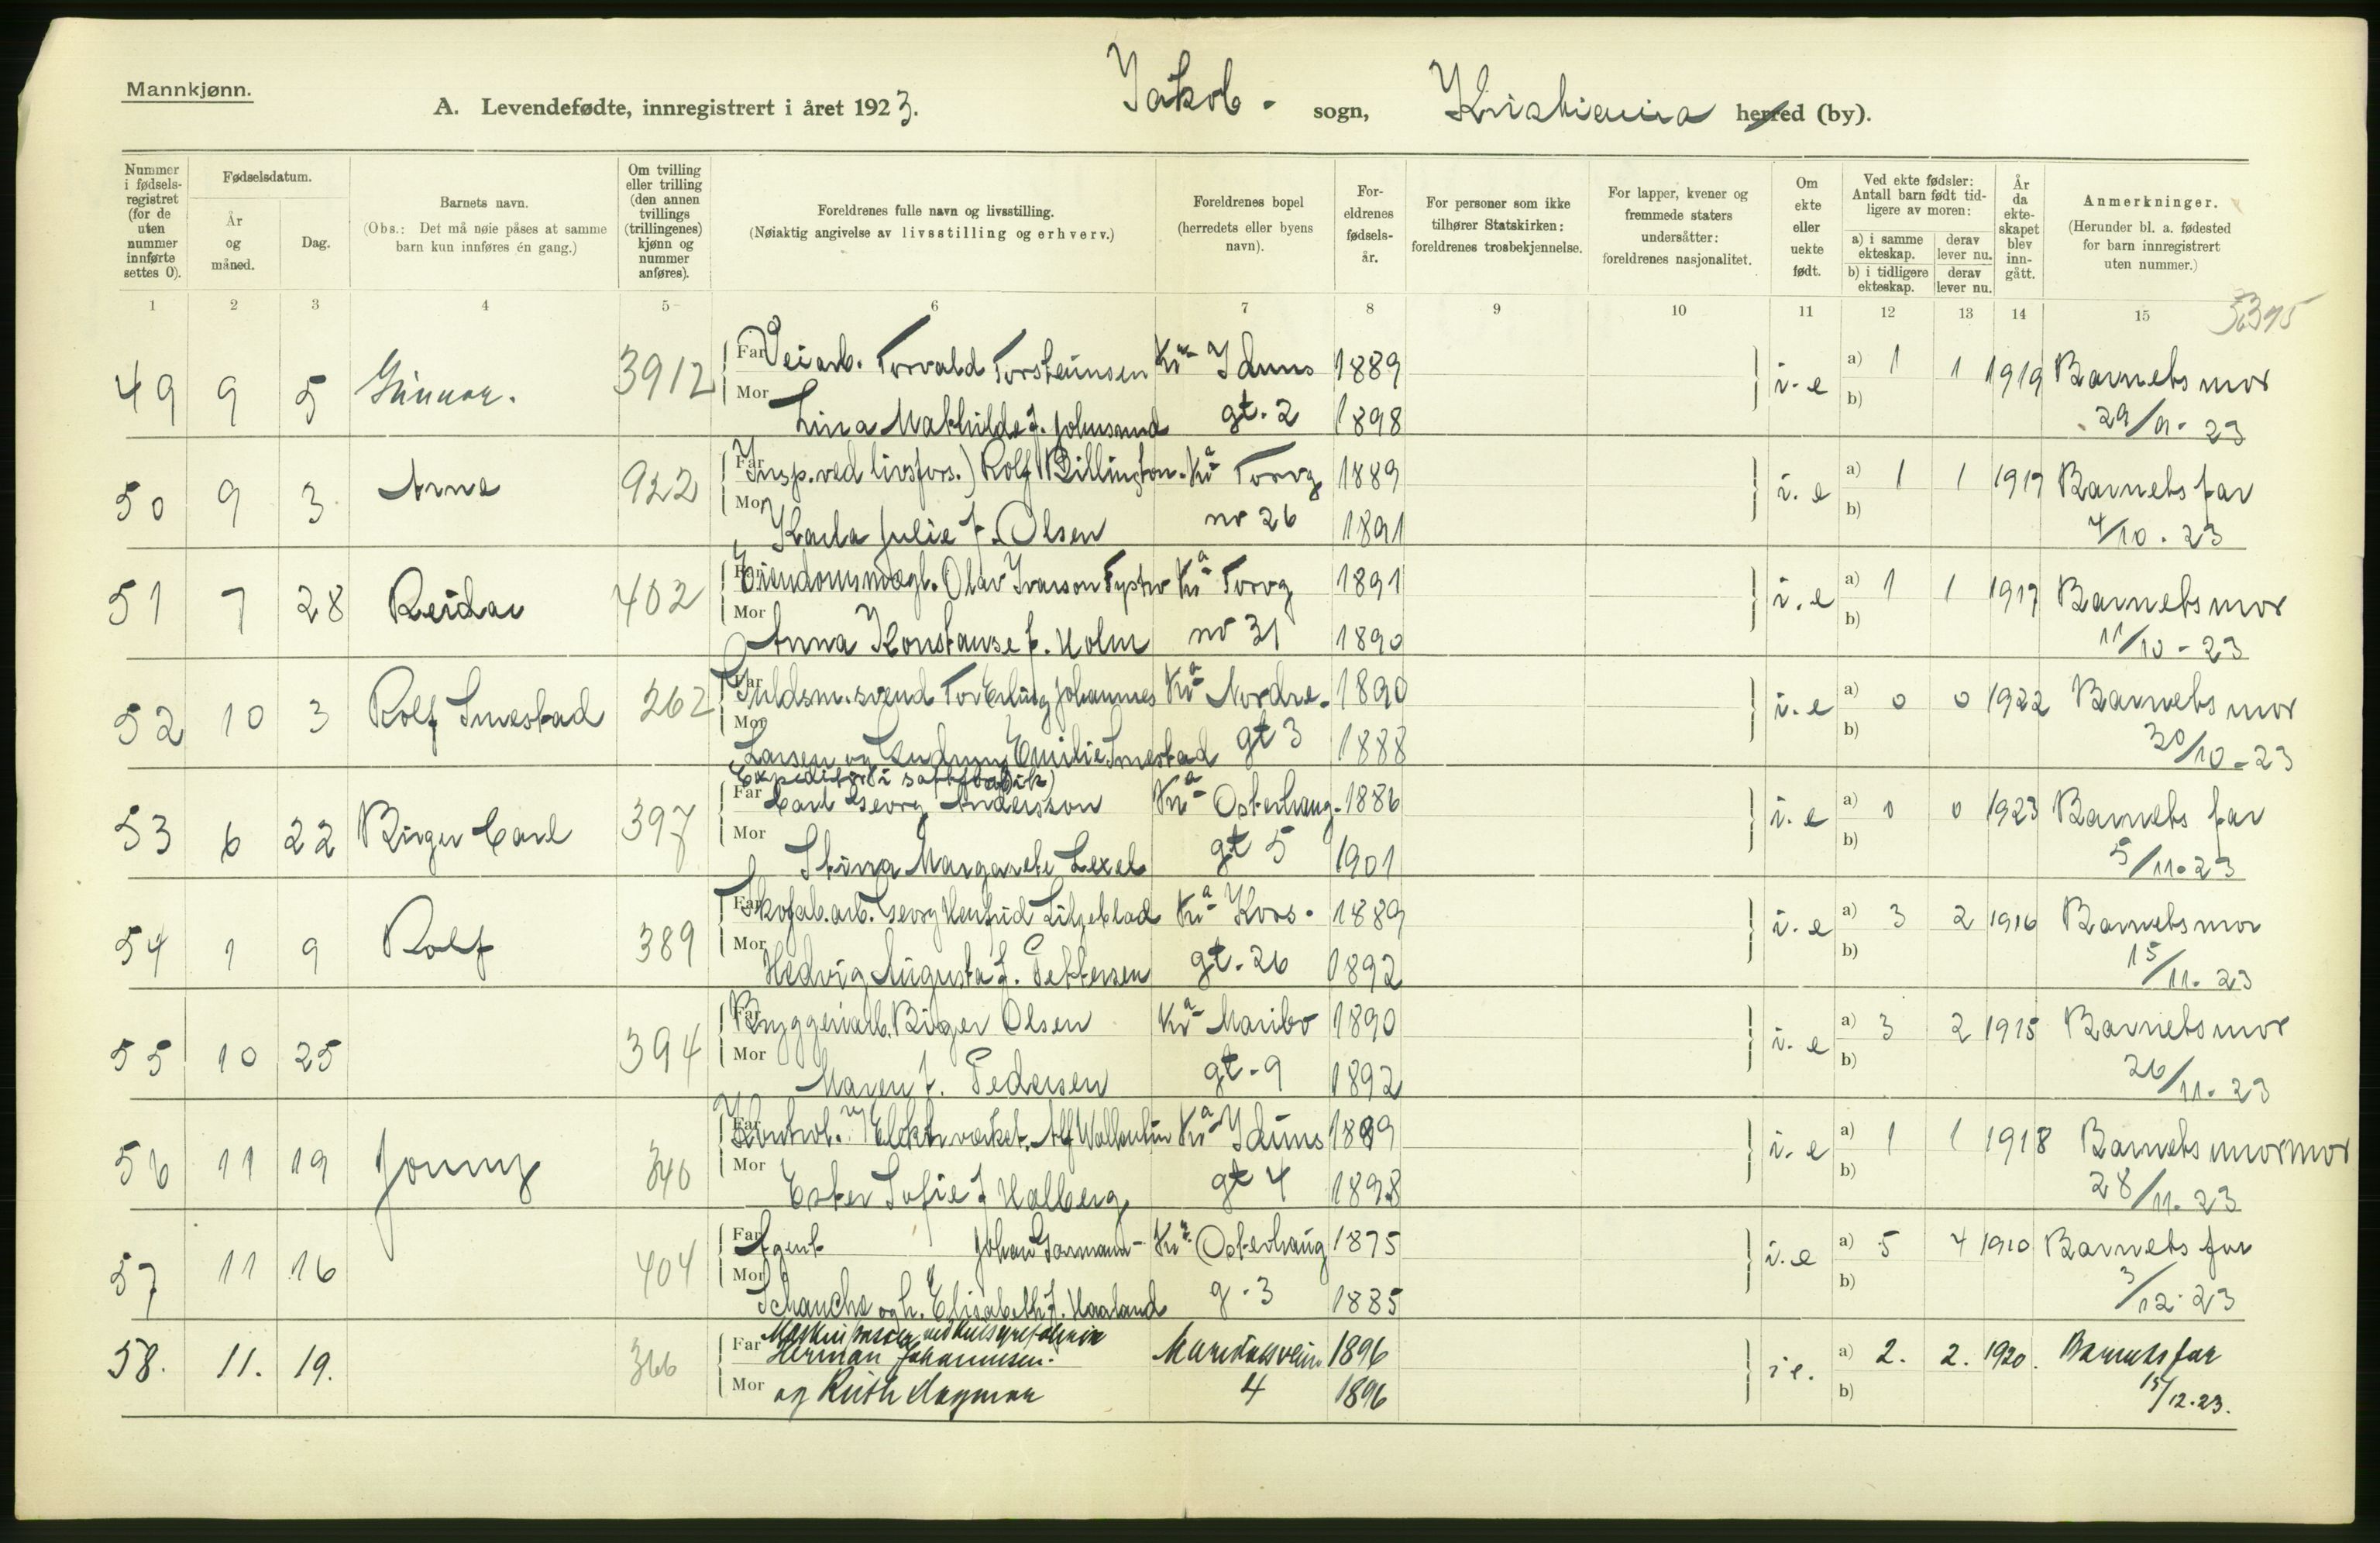 Mannkjønn.
A. Levendefødte, innregistrert i året 1923. Jakob - sogn, Kristiania herred (by).
Nummer i fødselsregistret (for de uten nummer innførte settes 0).
Fødselsdatum.
År og måned.
Dag.
Barnets navn.
(Obs.: Det må nøie påses at samme barn kun innføres én gang.)
Om tvilling eller trilling (den annen tvillings (trillingenes) kjønn og nummer anføres).
Foreldrenes fulle navn og livsstilling.
(Nøiaktig angivelse av livsstilling og erhverv.)
Foreldrenes bopel
(herredets eller byens navn).
Foreldrenes fødselsår.
For personer som ikke tilhører Statskirken: foreldrenes trosbekjennelse.
For lapper, kvener og fremmede staters undersåtter: foreldrenes nasjonalitet.
Om ekte eller uekte født.
Ved ekte fødsler: Antall barn født tidligere av moren:
a) i samme ekteskap.
derav lever nu.
b) i tidligere ekteskap.
derav lever nu.
År da ekteskapet blev inngått.
Anmerkninger.
(Herunder bl. a. fødested for barn innregistrert uten nummer.)
1 2 3 4 5 6 7 8 9 10 11 12 13 14 15
49 9 5 Gunnar. 3912 Far Veiarb. Torvald Torsteinsen Kra Iduns 1889 i. e a) 1 1 1919 Barnets mor
Mor Lina Mathilde f. Johnsrud gt. 2 1898 b) 29/9 - 23
50 9 3 Arne 922 Far Insp. ved livsfors.) Rolf Billington. Kra Torvg 1889 i. e a) 1 1 1917 Barnets far
Mor Karla Julie f. Olsen no 26 1891 b) 4/10 . 23
51 7 28 Reidar 402 Far Eiendomsmægl. Olav Ivarson Kra Torvg 1891 i. e a) 1 1 1917 Barnets mor
Mor Anna Konstanse f. Holm no 31 1890 b) 11/10 - 23
52 10 3 Rolf Smestad 262 Far Guldsm. svend Tor Erling Johannes Kra Nordre 1890 i. e a) 0 0 1922 Barnets mor
Mor Larsen og Gudrun Emilie Smestad gt 3 1888 b) 30/10 - 23
Expeditør i saftfabrik)
53 6 22 Birger Carl 397 Far Carl Georg Andersson Kra Osterhaug. 1886 i. e a) 0 0 1923 Barnets far
Mor Stina Margarete Lexel gt 5 1901 b) 5/11. 23
54 1 9 Rolf 389 Far Skofab. arb. Georg Henfrid Liljeblad Kra Kors. 1889 i. e a) 3 2 1916 Barnets mor
Mor Hedvig Augusta f. Pettersen gt. 26 1892 b) 15/11. 23
55 10 25 394 Far Bryggeriarb. Birger Olsen Kra Maribo 1890 i. e a) 3 2 1915 Barnets mor
Mor Maren f. Pedersen gt. 9 1892 b) 26/11. 23
56 11 19 Jonny 340 Far Kontrol. v/ Elektr. verket. Alf Wallentin Kra Iduns 1889 i. e a) 1 1 1918 Barnets mormor
Mor Ester Sofie f Halberg gt 4 1898 b) 28/11. 23
57 11 16 404 Far Agent Johan Garmann Kra Osterhaug 1875 i. e a) 5 4 1910 Barnets far
Mor Schanche og h. Elisabeth f. Haaland g. 3 1885 b) 3/12 23
Maskinpasser ved kulsyrefabrik
58. 11. 19. 366 Far Herman Johannesen. Maridalsveien 1896 i e. a) 2. 2. 1920. Barnets far
Mor og Ruth Dagmar 4 1896 b) 15/12. 23.